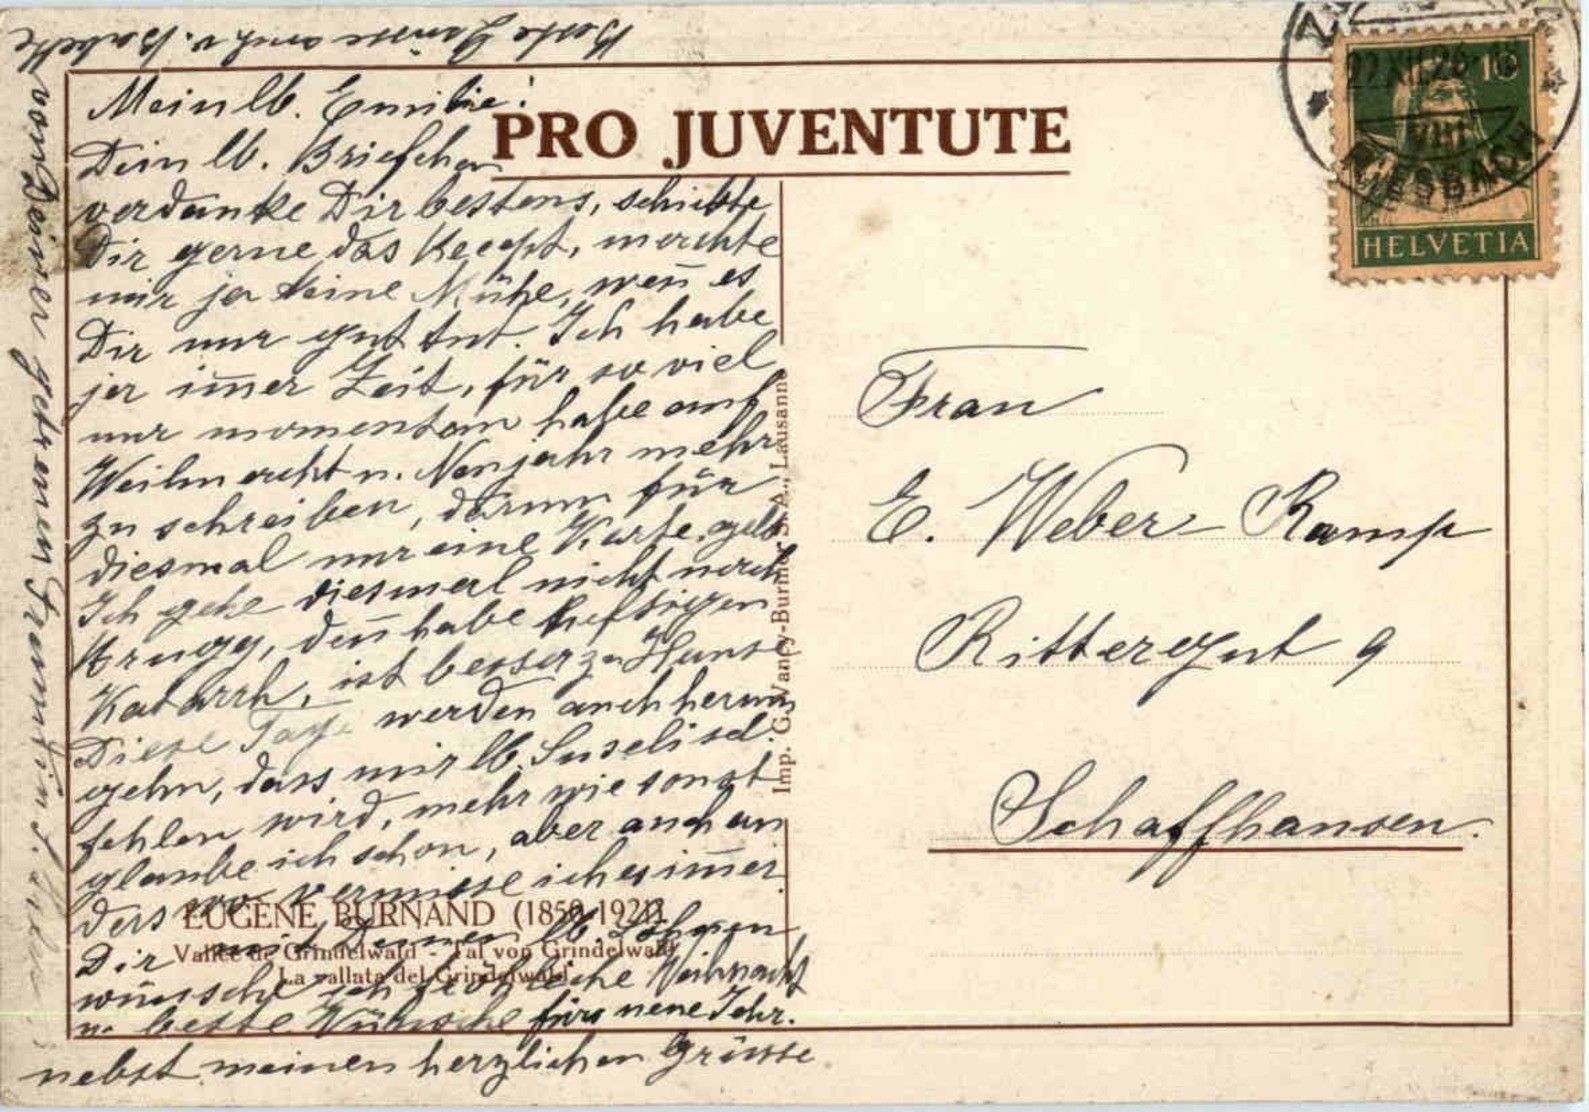 Mein lb. Emilie!
Dein lb. Briefchen
verdanke Dir bestens, schickte
Dir gerne das Recept, machte
mir ja keine Mühe, wen̄ es
Dir nur gut tut. Ich habe
ja im̄er Zeit, für so viel
nur momentan habe auf
Weihnacht u. Neujahr mehr
zu schreiben, darum für
diesmal nur eine Karte. gelt
Ich gehe diesmal nicht nach
Brugg, den̄ habe heftigen
Katarrh, ist besser zu Hause
Diese Tage werden auch herum
gehn, dass mir lb. Suseli sel.
fehlen wird, mehr wie sonst
glaube ich schon, aber auch an
ders wo vermisse ich es im̄er.
Dir mit Deinen lb. Söhnen
wünsche ich fröhliche Weihnacht
u. beste Wünsche fürs neue Jahr.
nebst meinen herzlichen Grüsse
von Deiner getreuen Freundin
Beste Grüsse auch v. Babette
PRO JUVENTUTE
EUGÈNE BURNAND (1850-1921).
Vallée de Grindelwald - Tal von Grindelwald
La vallata del Grindelwald
Imp. G. Vaney-Burnier S. A., Lausanne
22.XII.26
10
VIII
HELVETIA
Frau
E. Weber-Kamp
Rittergut 9
Schaffhausen.